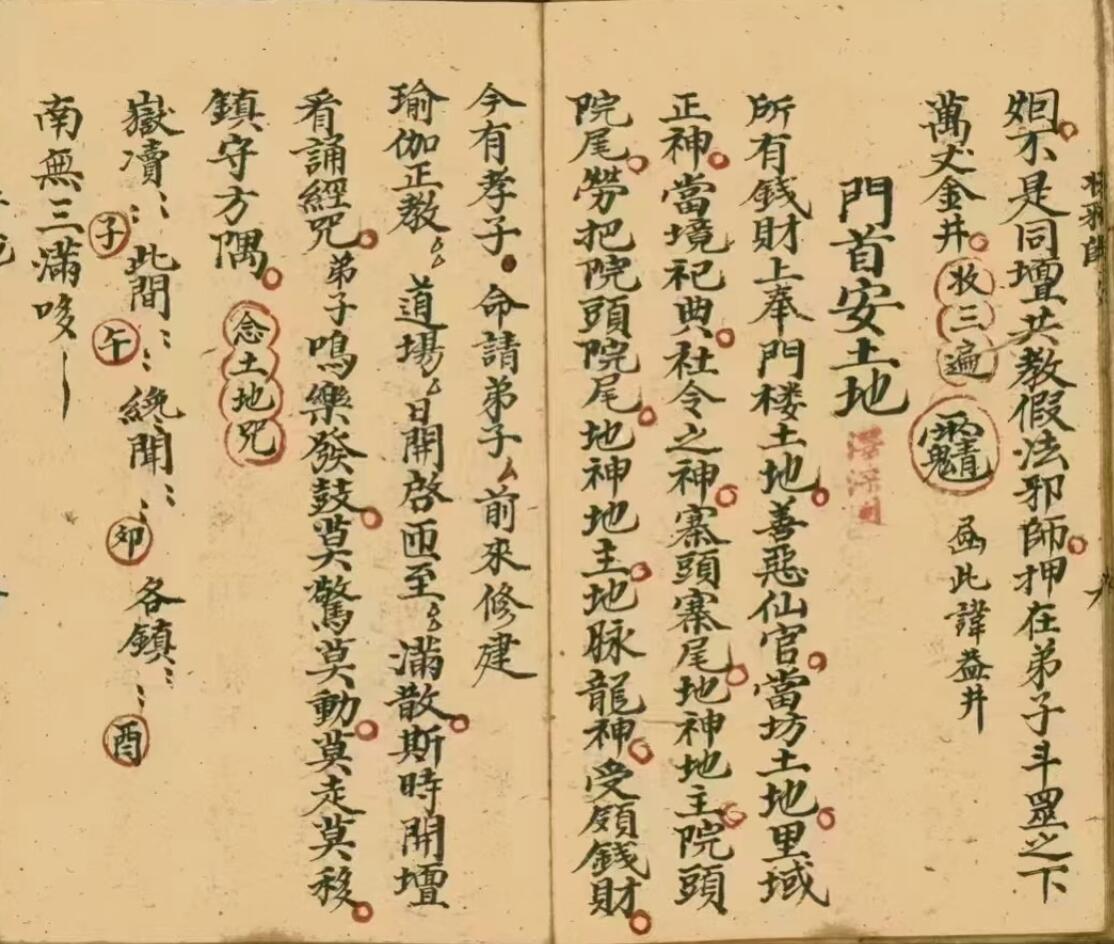 不是同壇共教假法邪師押在弟子斗罡之下
萬丈金井收三遍 此諱蓋井
門首安土地
所有錢財上奉門楼土地善惡仙官當坊土地里域
正神當境祀典社令之神寨頭寨尾地神地主院頭
院尾勞把院頭院尾地神地主地脉龍神受領錢財
今有孝子命請弟子前來修建
瑜伽正教道場日開啓 至滿散斯時開壇
看誦經咒弟子鳴樂發鼓莫驚莫動莫走莫移
鎮守方隅念土地咒
嶽瀆子此間午纔聞卯各鎮酉
南無三滿哆